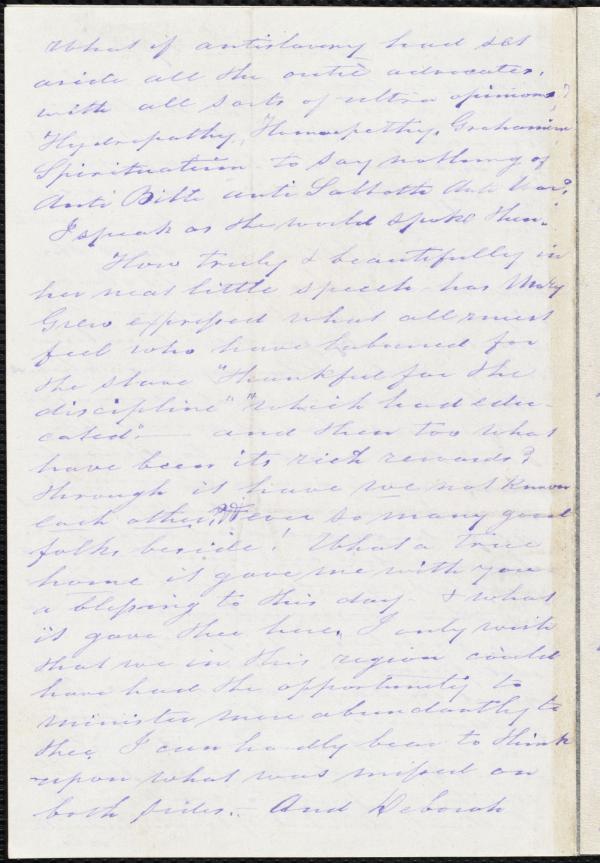 What if antislavery had set
aside all the outré advocates,
with all sorts of ultra opinions?
Hydropathy, Homoepathy, Grahamism
Spiritualism - to say nothing of
Anti Bible anti Sabbath Anti War?
I speak as the world spoke then.
How truly & beautifully in
her neat little speech has Mary
Grew expressed what all must
feel who have labored for
the slave "Thankful for the
discipline" "which had edu-
cated" — and then too what
have been its rich rewards?
through it have we not known
each other, & ever so many good
folks beside! What a true
home it gave me with you
a blessing to this day - & what
it gave thee here. I only wish
that we in this region could
have had the opportunity to
minister more abundantly to
thee. I can hardly bear to think
upon what was missed on
both sides. - And Deborah